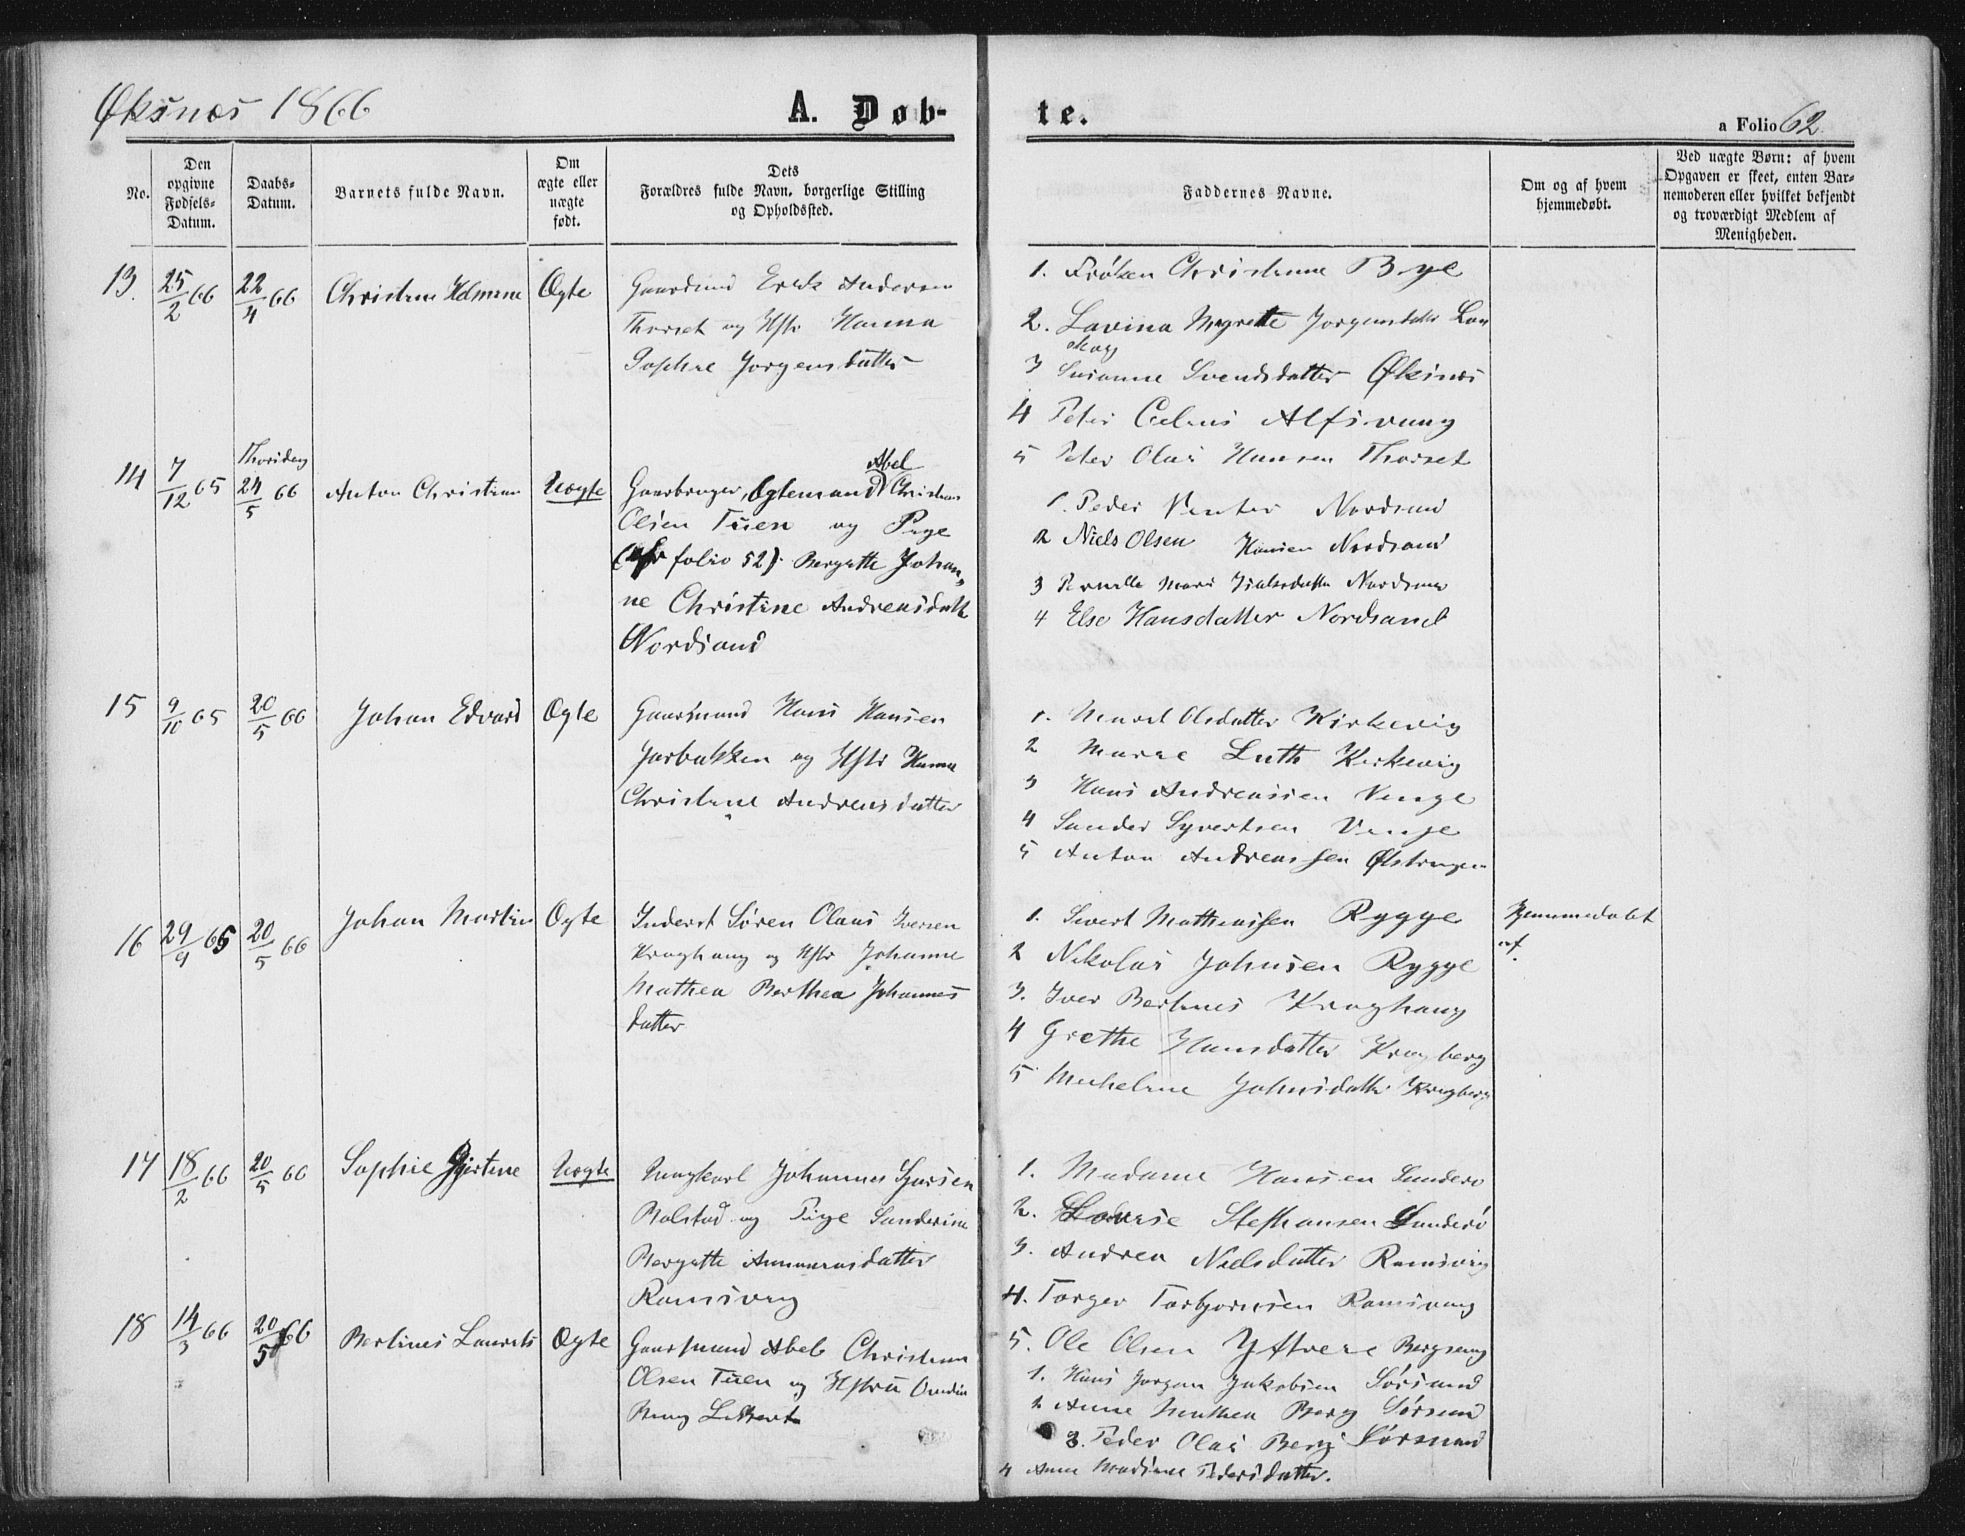 Øksnes 1866
A. Døb-
te.
a Folio 62.
No.
Den
opgivne
Fødsels-
Datum.
Daabs-
Datum.
Barnets fulde Navn.
Om
ægte eller
uægte
født.
Dets
Forældres fulde Navn, borgerlige Stilling
og Opholdssted.
Faddernes Navne.
Om og af hvem
hjemmedøbt.
Ved uægte Børn: af hvem
Opgaven er skeet, enten Bar-
nemoderen eller hvilket bekjendt
og troværdigt Medlem af
Menigheden.
13. 25/2 66 22/4 66 Christine Helmine Ægte
Gaardmd Erik Andersen
Thorset og Hstr Hanna
Sophie Jørgensdatter
1. Frøken Christine Bye
2. Lavina Magrette Jørgensdatter
3 Susanne Svendsdatter Øksnes
4 Peter Alfsvaag
5 Peter Olai Hansen Thorset
14 7/12 65 Thorsdag 24/5 66 Anton Christian Uægte
Abel
Gaardbruger, Ægtemand Christian
Olsen Tuen og Pige
folio 52). Bergitte Johan-
ne Christine Andreasdatt
Nordsand
1. Peder Nordsand
2 Niels Olsen Hansen Nordsand
3 Pernille Marie Nordsand
4 Else Hansdatter Nordsand
15 9/10 65 20/5 66 Johan Edvard Ægte
Gaardmand Hans Hansen
Jorbakken og Hstr Hanna
Christine Andreasdatter
1. Maret Olsdatter Kirkevig
2 Marie Luth Kirkevig
3 Hans Andreassen Vinge
4 Sander Syvertsen Vinje
5 Anton Andreassen
16 29/9 65 20/5 66 Johan Martin Ægte
Inderst Søren Olaus Iversen
Kroghaug og Hstr Johanne
Mathea Berthea Johannes
datter
1. Sivert Mathiassen Rygge
2 Nikolai Johnsen Rygge
3. Iver Bertinus Kroghaug
4 Grethe Hansdatter Krogberg
5 Micheline Johnsdatter Krogberg
Hjemmedøbt
af.
17 18/2 66 20/5 66 Sophie Gjertine Uægte
Ungkarl Johannes
Bolstad og Pige Sanderine
Bergitte datter
Ramsvig
1. Madame Hansen Sanderø
2. Lovise Steffensen Sanderø
3. Andrea Nielsdatter Ramsvig
4. Torger Torbjørnsen Ramsvaag
5. Ole Olsen
18 14/3 66 20/5 66 Bertinus Laurits Ægte
Gaardmand Abel Christian
Olsen Tuen og Hstru
Berg
1. Hans Jørgen Jakobsen Sørsand
2 Anne Mathea Berg Sørsand
3. Peder Olai Berg Sørsand
4 Anne Pedersdatter.